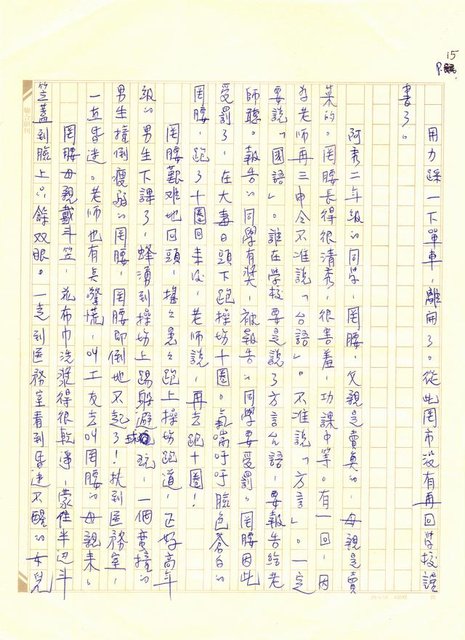 15
P.
用力踩一下單車，離開了。從此罔市沒有再回學校讀
書了。
阿秀二年級的同學，罔腰，父親是賣魚的，母親是賣
菜的。罔腰長得很清秀，很害羞，功課中等。有一回，因
為老師再三申令不准說「台語」。不准說「方言」。一定
要說「國語」。誰在學校要是說了方言台語，要報告給老
師聽。報告的同學有獎，被報告的同學要受罰。罔腰因此
受罰了，在大太陽日頭下跑操場十圈。氣喘吁吁臉色蒼白的
罔腰，跑了十圈回來後，老師說，再去跑十圈！
罔腰艱難地回頭，搖搖晃晃跑上操場跑道，正好高年
級的男生下課了，蜂湧到操場上踢躲避球玩，一個蠻撞的
男生撞倒瘦弱的罔腰，罔腰即倒地不起了！扶到醫務室，
一直昏迷。老師也有點驚慌，叫工友去叫罔腰的母親來。
罔腰母親戴斗笠，花布巾洗漿得很乾淨，蒙住半邊斗
笠蓋到臉上只餘双眼。一走到醫務室看到昏迷不醒的女兒